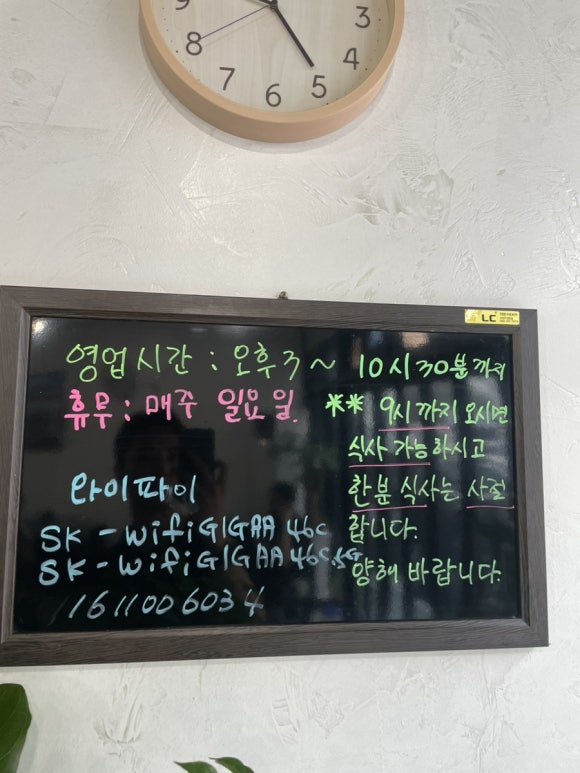 9 3
8 4
7 6 5
LC
영업시간 : 오후3 ~ 10시30분까지
휴무 : 매주 일요일.
** 9시까지 오시면
식사 가능하시고
한분 식사는 사절
합니다.
양해 바랍니다.
와이파이
SK - WifiGIGAA 46C
SK - WifiGIGAA 46C.5G
1611006034